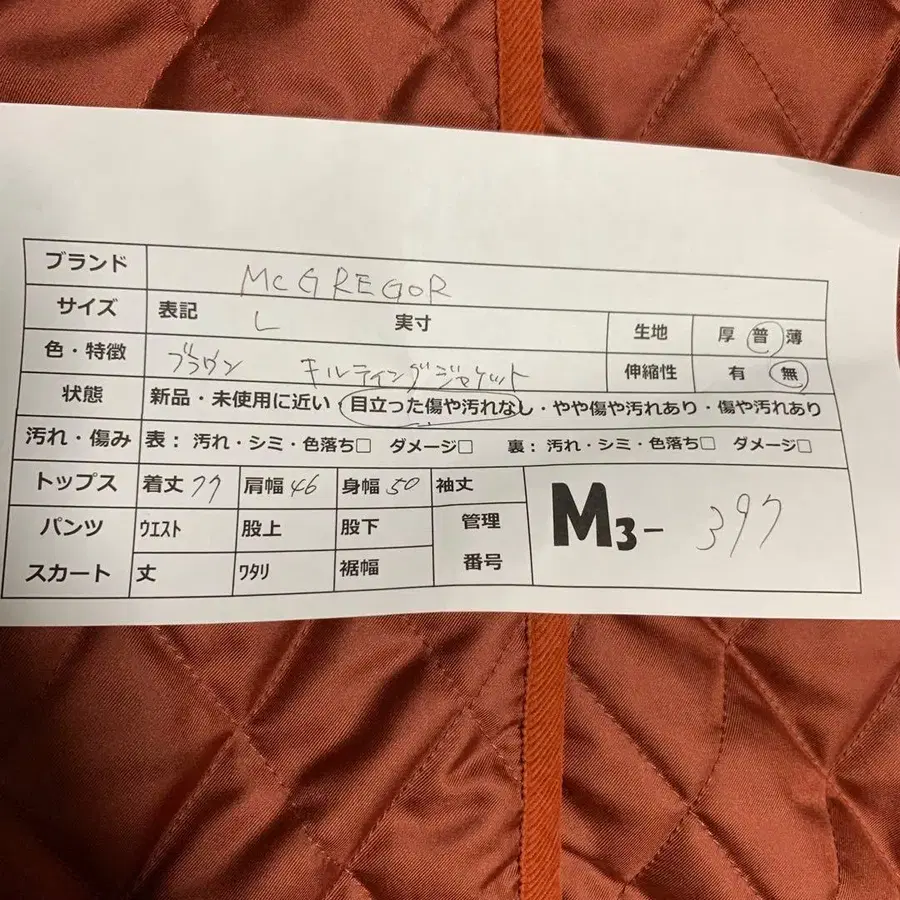 ブランド McGREGOR
サイズ 表記 L 実寸 生地 厚 普 薄
色・特徴 ブラウン キルティングジャケット 伸縮性 有 無
状態 新品・未使用に近い・目立った傷や汚れなし・やや傷や汚れあり・傷や汚れあり
汚れ・傷み 表：汚れ・シミ・色落ち□ ダメージ□ 裏：汚れ・シミ・色落ち□ ダメージ□
トップス 着丈 77 肩幅 46 身幅 50 袖丈
パンツ ウエスト 股上 股下 管理番号 M3- 397
スカート 丈 ワタリ 裾幅